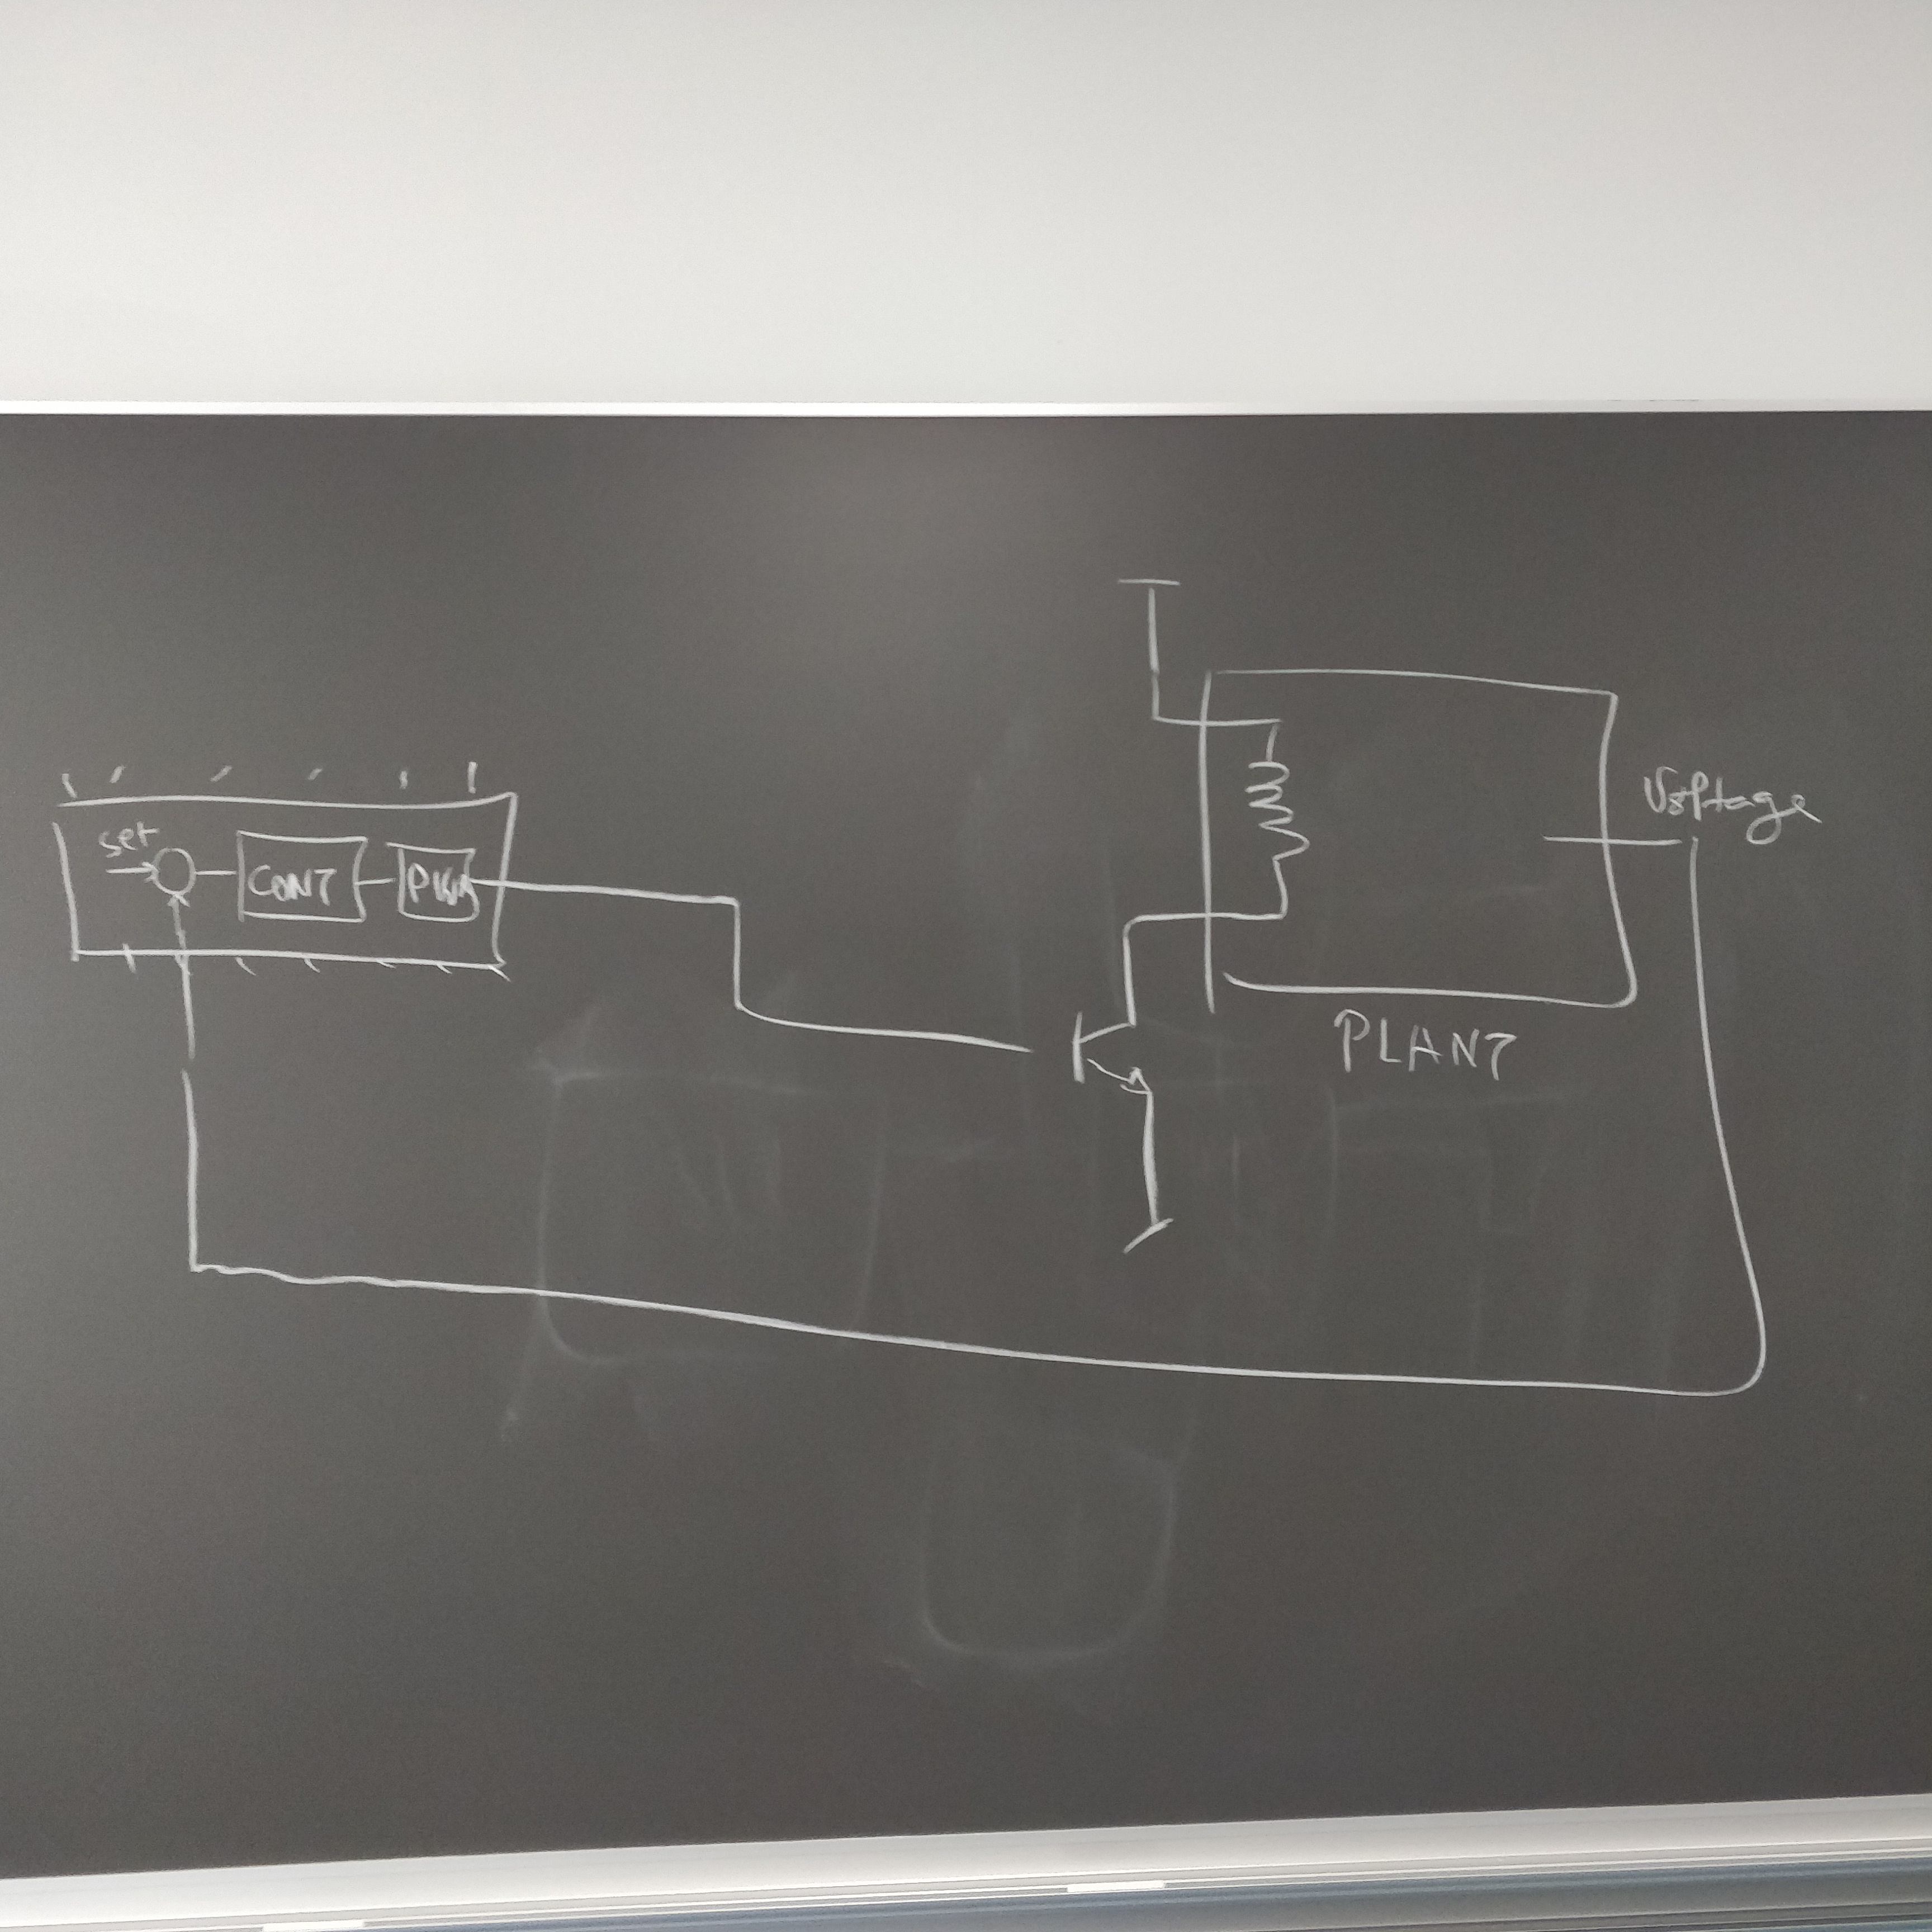 set
CONT
PWM
Voltage
PLANT